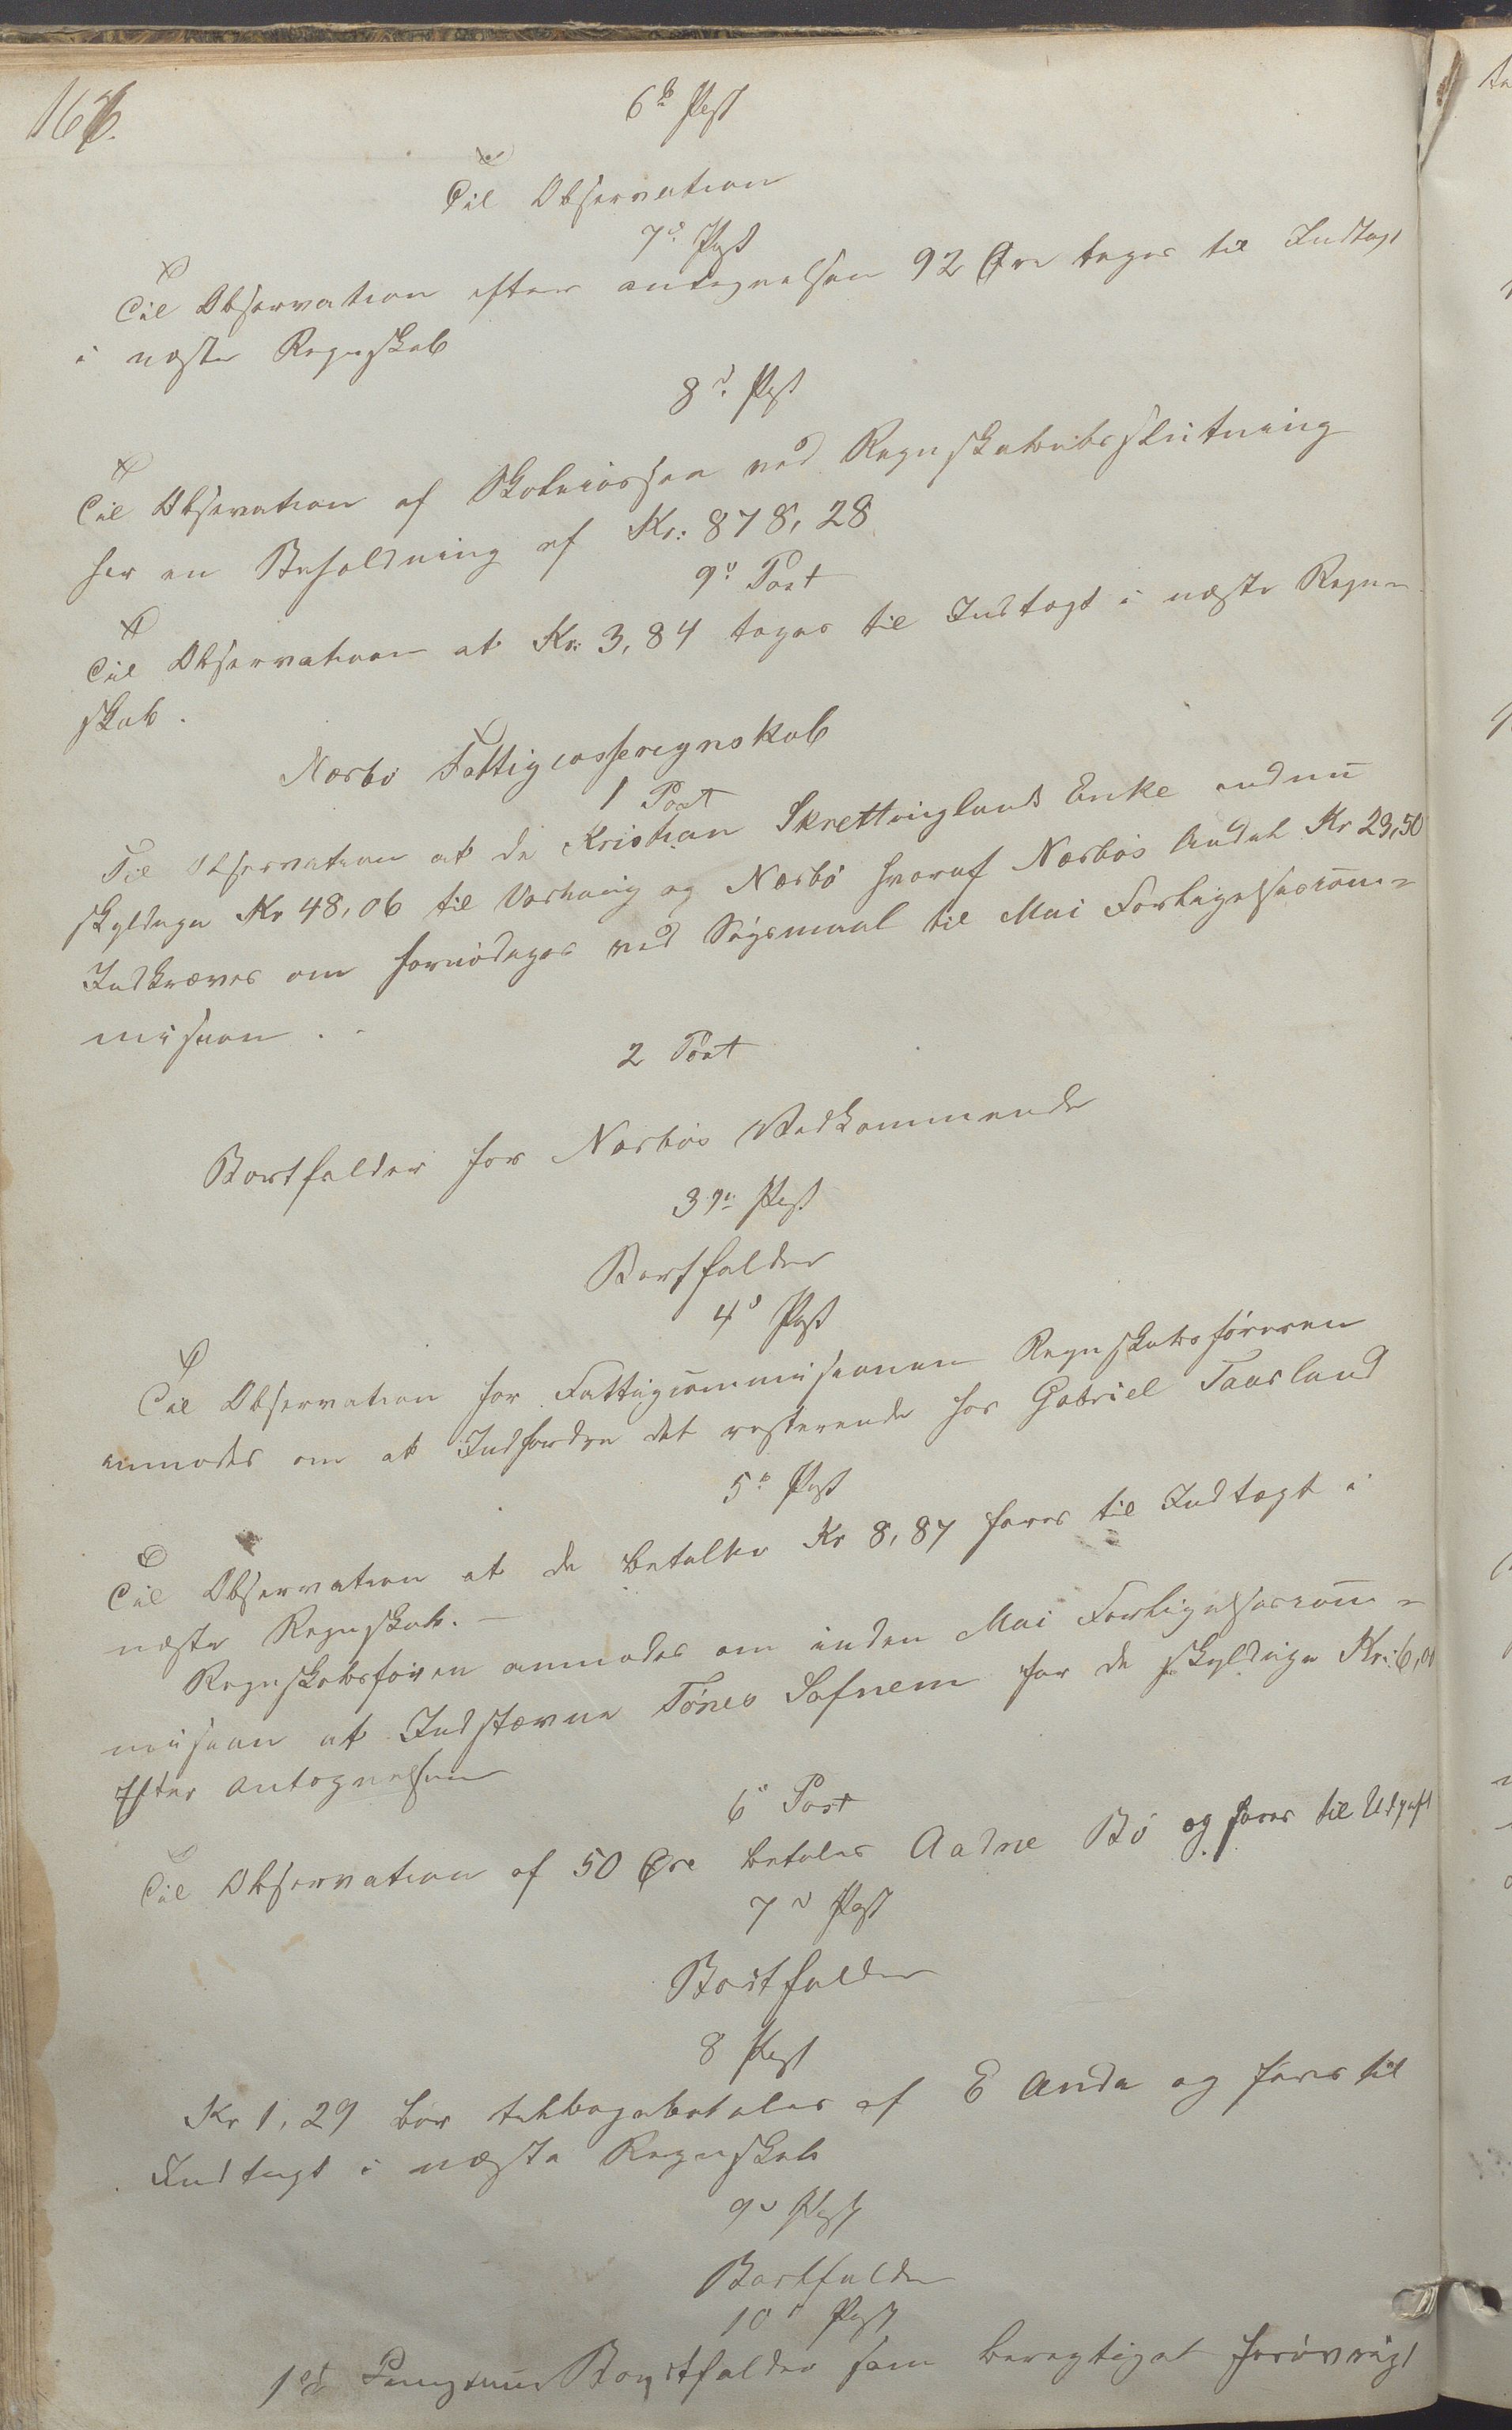 166.
6te Post
Til Observation
7de Post
Til Observation efter antegnelsen 92 Øre tages til Indtægt
i næste Regnskab
8de Post
Til Obsevation af Skolecassen ved Regnskabets slutning
har en Beholdning af Kr: 878,28
9de Post
Til Observation at Kr: 3,84 tages til Indtægt i næste Regn-
skab.
Nærbø Fattigcasseregnskab
1 Post
Til Observation at de Kristian Skrettinglands Enke endnu
skyldige Kr 48,06 til Varhaug og Nærbø hvoraf Nærbøs Andel Kr 23,50
Indkræves om fornødiges ved Søgsmaal til Mai Forligelsescom-
mision.
2 Post
Bortfalder for Nærbøs Vedkommende
3die Post
Bortfalder
4de Post
Til Observation for Fattigcommisionen Regnskabsføreren
anmodes om at Indfordre det resterende hos Gabriel Taarland
5te Post
Til Observation at de betalte Kr 8,87 føres til Indtægt i
næste Regnskab.
Regnskabsføren anmodes om inden Mai Forligelsescom-
mision at Indstævne Tönes for de skyldige Kr:
Efter antegnelsen
6te Post
Til Observation af 50 Øre betales Aadne Bø og føres til Udgift
7de Post
Bortfalder
8 Post
Kr 1,29 bør tilbagebetales af E Anda og føres til
Indtægt i næste Regnskab
9de Post
Bortfalder
10de Post
1ste Punctum Bortfalder som beregtiget forøvrigt